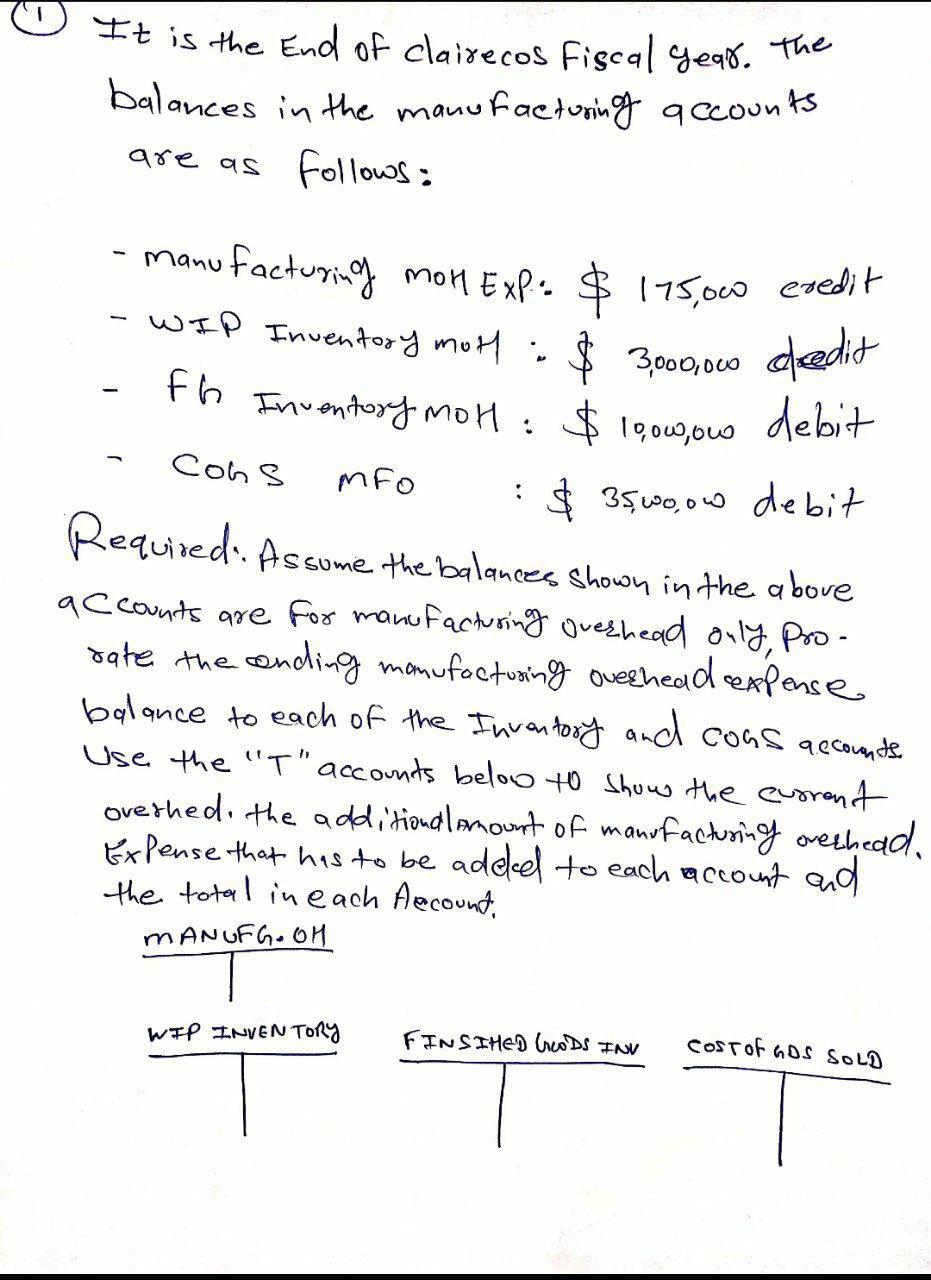 1 It is the End of clairecos Fiscal year. The
balances in the manufacturing accounts
are as follows:
- manufacturing MOH Exp: $ 175,000 credit
- WIP Inventory MOH : $ 3,000,000 debit
- FG Inventory MOH : $ 10,000,000 debit
- COGS MFO : $ 35,000,000 debit
Required: Assume the balances shown in the above
accounts are for manufacturing overhead only, Pro-
rate the ending manufacturing overhead expense
balance to each of the Inventory and COGS accounts.
Use the "T" accounts below to show the current
overhed. the additional amount of manufacturing overhead.
Expense that has to be added to each account and
the total in each Account.
MANUFG. OH
WIP INVENTORY FINSIHED GOODS INV COST OF GDS SOLD